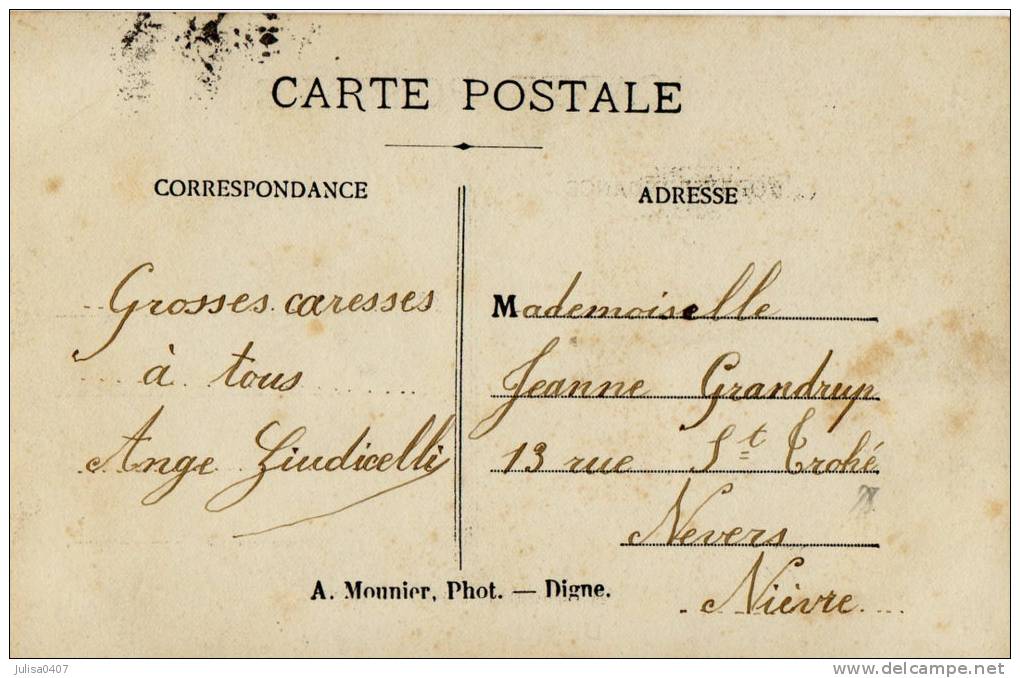 CARTE POSTALE
CORRESPONDANCE
Grosses caresses
à tous
Ange Giudicelli
ADRESSE
Mademoiselle
Jeanne Grandrup
13 rue St Trohé
Nevers
Nièvre
A. Mounier, Phot. — Digne.
julisa0407
www.delcampe.net